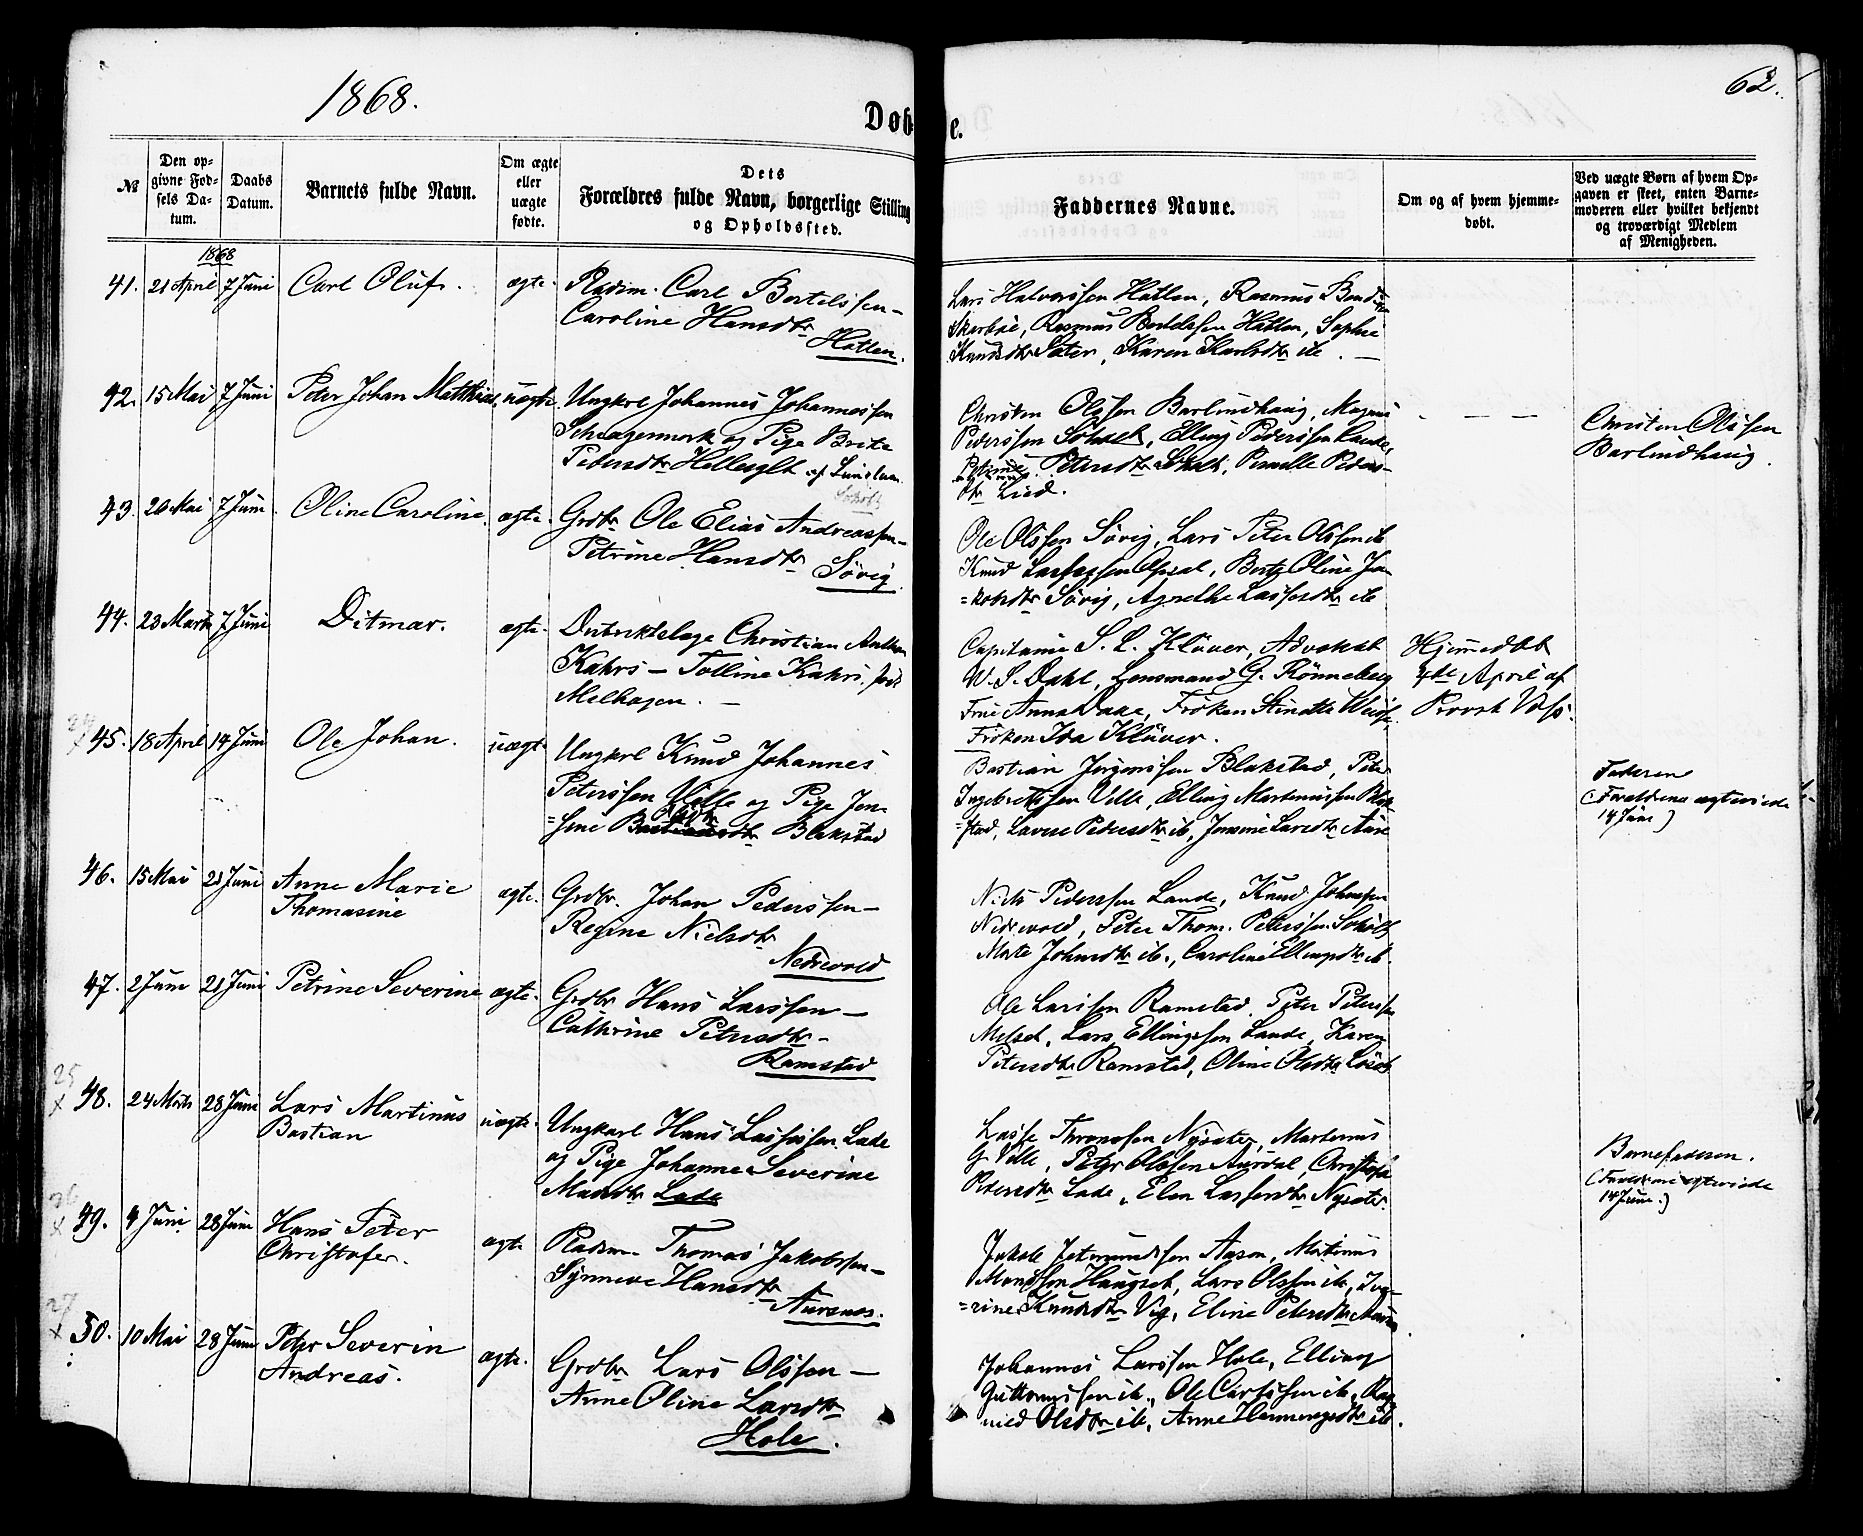 1868.
62.
Døbte.
№
Den op-
givne Fød-
sels Da-
tum.
Daabs
Datum.
Barnets fulde Navn.
Om ægte
eller
uægte
fødte.
Dets
Forældres fulde Navn, borgerlige Stilling
og Opholdssted.
Faddernes Navne.
Om og af hvem hjemme-
døbt.
Ved uægte Børn af hvem Op-
gaven er skeet, enten Barne-
moderen eller hvilket bekjendt
og troværdigt Medlem
af Menigheden.
1868
41. 21 April 7 Juni Carl Oluf. ægte. Pladsm. Carl Bertelssen —
Caroline Hansdtr
Hatlen.
Lars Halvorssen Hatlen, Rasmus
Rasmus Bertelssen Hatlen, Sophie
Knudsdtr Sæter, Karen Karlsdtr ib. —
42. 15 Mai 7 Juni Peter Johan Matthias. uægte Ungkarl Johannes Johannessen
og Pige Brite
Petersdtr Hellesylt af
Christen Olssen Barlindhaug, Magnus
Pederssen Soholt, Elling Pederssen Lande,
Petersdtr Soholt, Pernille Peders-
dtr Lied.
— — —
Christen Olssen
Barlindhaug.
43. 20 Mai 7 Juni Oline Caroline. ægte. Grdbr Ole Elias Andreassen —
Petrine Hansdtr
Søvig.
Ole Olssen Søvig, Lars Peter Olssen ib
Knud Lassessen Opsal, Berthe Oline Ja-
=kobsdtr Søvig, Agnethe Lassesdtr ib
44. 23 Marts 7 Juni Ditmar. ægte. Distriktslæge Christian Anthon
Kahrs — Tolline Kahrs, født
Melhagen. —
Capitaine S. L. Klüver, Advokat
W. S. Dahl, Lensmand G. Rønneberg
Frue Anna
Frøken Ida Klüver.
Hjemmedøbt
4de April af
Provst Voss.
45. 18 April 14 Juni Ole Johan. uægte Ungkarl Knud Johannes
Peterssen Velle og Pige Jen-
=sine Blakstad
Bastian Jørgenssen Blakstad, Peter
Ingebretssen Velle, Elling Martinussen Blak-
=stad, Lavise Pedersdtr ib, Jensine Larsdtr Aure
Faderen
(Forældrene ægteviede
14 Juni)
46. 15 Mai 21 Juni Anne Marie
Thomasine
ægte. Grdbr. Johan Pederssen —
Regine Nielsdtr
Nedrevold
Niels Pederssen Lande, Knud Johanssen
Nedrevold, Peter Thom. Peterssen Soholt,
Marte Johnsdtr ib., Caroline Ellingsdtr ib.
47. 2 Juni 21 Juni Petrine Severine ægte. Grdbr Hans Larssen —
Cathrine Petersdtr —
Ramstad
Ole Larssen Ramstad, Peter Peterssen
Melset, Lars Ellingssen Lande, Karen
Petersdtr Ramstad, Oline Olsdtr
25
x
48. 24 Marts 28 Juni Lars Martinus
Bastian
uægte. Ungkarl Hans Lassessen Lade
og Pige Johanne Severine
Lade
Lasse Thronssen Nysæter, Martinus
G. Velle, Peter Olssen Aursdal,
Petersdtr Lade, Elen Lassesdtr Nysæter.
Barnefaderen.
(Forældrene ægteviede
14 Juni.)
26
x
49. 4 Juni 28 Juni Hans Peter
Christofer.
ægte Pladsm. Thomas Jakobssen —
Synneve Hansdtr
Aursnes.
Jakob Jetmundssen Aasen, Martinus
Monssen Haugset, Lars Olssen ib.,
=rine Knudsdtr Vig, Eline Petersdtr
27
x
50. 10 Mai 28 Juni Peter Severin
Andreas.
ægte. Grdbr Lars Olssen —
Anne Oline Larsdtr
Hole.
Johannes Larssen Hole, Elling
Guttormssen ib., Ole Carlssen ib., Rag-
nild Olsdtr ib., Anne Henningsdtr ib.